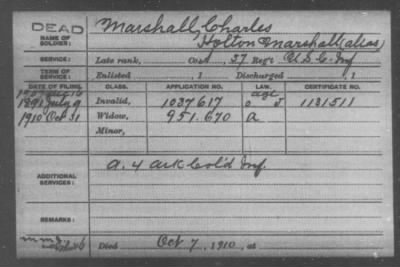 DEAD
NAME OF SOLDIER:
Marshall, Charles
Holton Marshall (alias)
SERVICE:
Late rank, Co. 57 Reg't U.S.C. Inf
TERM OF SERVICE:
Enlisted , 1 Discharged , 1
DATE OF FILING. CLASS. APPLICATION NO. LAW. CERTIFICATE NO.
age
1891 July 9 Invalid, 1037617 J 1131511
1910 Oct 31 Widow, 951.670 a
Minor,
ADDITIONAL SERVICES:
A. 4 Ark Col'd Inf.
REMARKS:
Died Oct 7, 1910, at